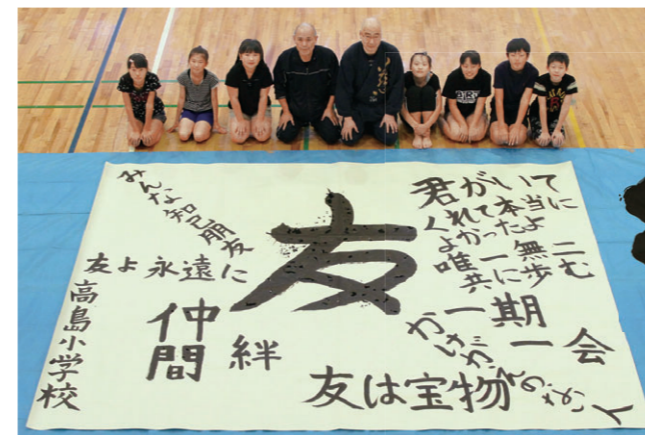 君がいて
くれて本当に
よかったよ
唯一無二
共に歩む
一期一会
かけがえのない人
友
友は宝物
みんな知己朋友
友よ永遠に
仲間
絆
高島小学校